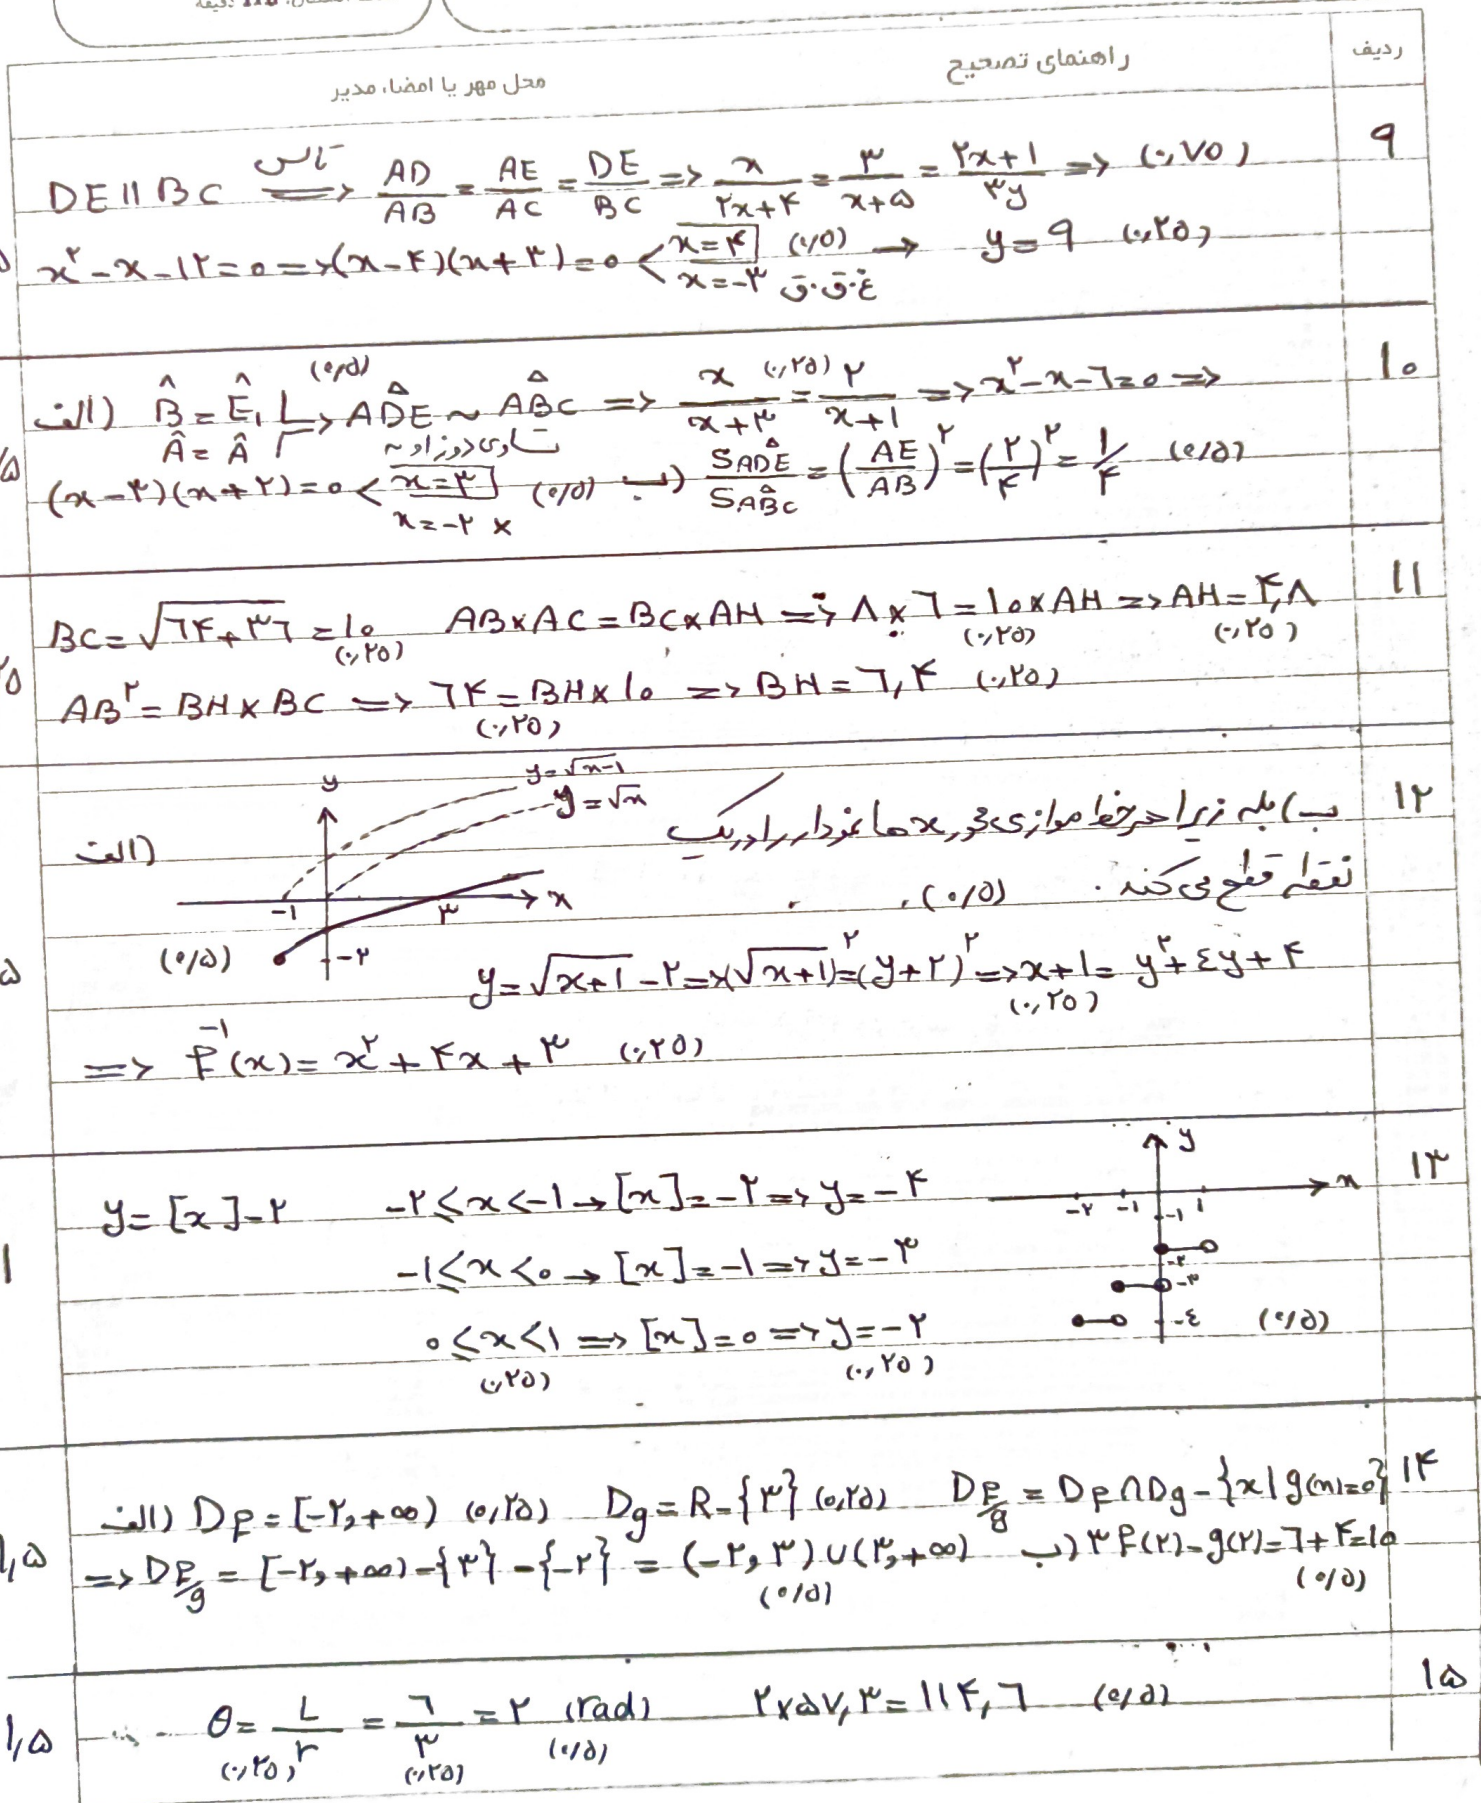 ردیف
راهنمای تصحیح
محل مهر یا امضاء مدیر
۹
DE || BC ⟹ تالس AD/AB = AE/AC = DE/BC => x/(۲x+۴) = ۳/(x+۵) = (۲x+۱)/۳y => (۰,۷۵)
x² - x - ۱۲ = ۰ => (x-۴)(x+۳) = ۰ < x=۴ (۰/۵) → y = ۹ (۰,۲۵)
x = -۳ غ.ق.ق
۱۰
الف) B̂ = Ê₁ , Â = Â => ADE ~ ABC (۰/۵) => x/(x+۳) = ۲/(x+۱) (۰,۲۵) => x² - x - ۶ = ۰ =>
تساوی دو زاویه
(x-۳)(x+۲) = ۰ < x=۳ (۰/۵) ب) S ADE / S ABC = (AE/AB)² = (۲/۴)² = ۱/۴ (۰/۵)
x = -۲ ×
۱۱
BC = √(۶۴+۳۶) = ۱۰ (۰,۲۵) AB × AC = BC × AH => ۸ × ۶ = ۱۰ × AH (۰,۲۵) => AH = ۴,۸ (۰,۲۵)
AB² = BH × BC => ۶۴ = BH × ۱۰ (۰,۲۵) => BH = ۶,۴ (۰,۲۵)
۱۲
الف)
y = √x-1
y = √x
y
x
-۱ ۳
-۲
(۰/۵)
ب) بله زیرا هر خط موازی محور xها نمودار را در یک
نقطه قطع می کند. (۰/۵)
y = √(x+۱) - ۲ => (√(x+۱))² = (y+۲)² => x+۱ = y² + ٤y + ۴ (۰,۲۵)
=> f⁻¹(x) = x² + ۴x + ۳ (۰,۲۵)
۱۳
y = [x] - ۲ -۲ ≤ x < -۱ → [x] = -۲ => y = -۴
-۱ ≤ x < ۰ → [x] = -۱ => y = -۳
۰ ≤ x < ۱ => [x] = ۰ => y = -۲
(۰,۲۵) (۰,۲۵)
y
x
-۲ -۱ ۱
-۱
-۲
-۳
-٤
(۰/۵)
۱۴
الف) Df = [-۲, +∞) (۰,۲۵) Dg = R - {۳} (۰,۲۵) Df/g = Df ∩ Dg - {x | g(x)=۰}
=> Df/g = [-۲, +∞) - {۳} - {-۲} = (-۲, ۳) ∪ (۳, +∞) (۰/۵) ب) ۳f(۲) - g(۲) = ۶ + ۴ = ۱۰ (۰/۵)
۱,۵
۱۵
θ = L/r (۰,۲۵) = ۶/۳ (۰,۲۵) = ۲ (rad) (۰/۵) ۲ × ۵۷,۳ = ۱۱۴,۶ (۰/۵)
۱,۵